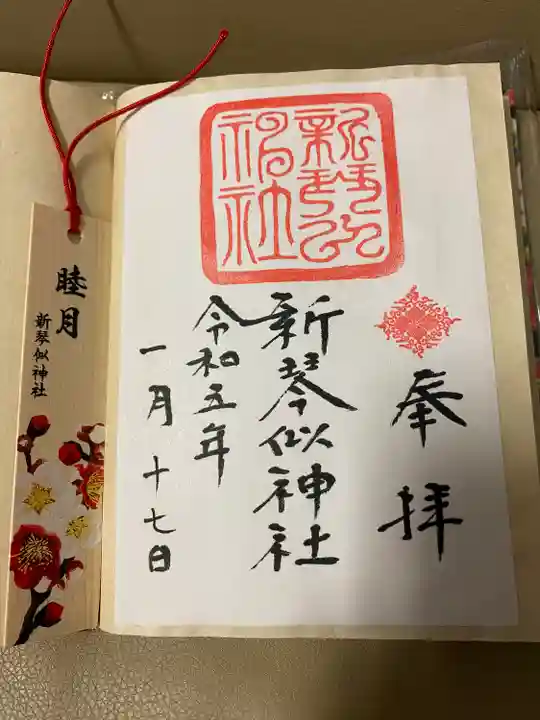 奉拝
新琴似神社
令和五年
一月十七日
新琴似
神社
睦月
新琴似神社